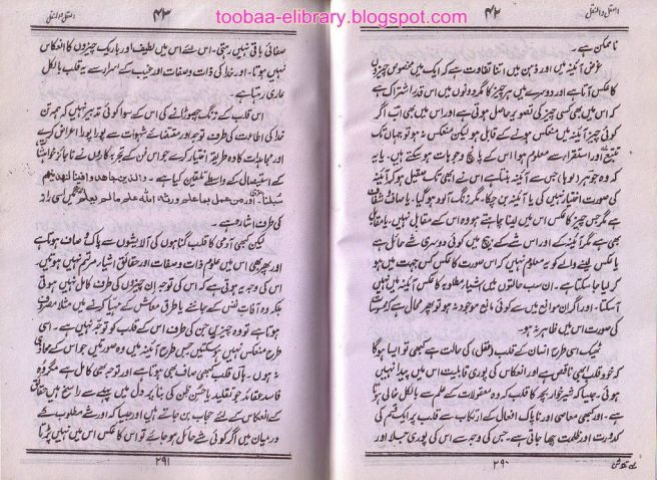 toobaa-elibrary.blogspot.com
العقل والنقل ۴۲
ناممکن ہے۔
غرض آئینہ میں اور ذہن میں اتنا تفاوت ہے کہ ایک میں مخصوص چیزوں
کا عکس آتا ہے اور دوسرے میں ہر چیز کا مگر دونوں میں اس قدر اشتراک ہے
کہ اس میں بھی کسی چیز کی تصویر حاصل ہوتی ہے اور اس میں بھی اب اگر
کوئی چیز آئینہ میں منعکس ہونے کے قابل ہو لیکن منعکس نہ ہو تو جہاں تک
تتبع اور استقرار سے معلوم ہوا اس کے پانچ وجوہات ہو سکتے ہیں۔ یا یہ
کہ وہ جوہر (لوہا) جس سے آئینہ بنتا ہے اس نے ابھی تک صیقل ہو کر آئینہ
کی صورت اختیار نہیں کی یا آئینہ بن چکا۔ مگر زنگ آلود ہو گیا۔ یا صاف شفاف
ہے مگر جس چیز کا عکس اس میں لینا چاہتے ہو وہ اس کے مقابل نہیں، یا مقابل
بھی ہے مگر آئینہ کے اور اس شے کے بیچ میں کوئی دوسری شے حائل ہے
یا عکس لینے والے کو یہ معلوم نہیں کہ اس صورت کا عکس کس جہت میں ہو
کر لیا جا سکتا ہے۔ ان سب حالتوں میں اشیاء مطلوبہ کا عکس آئینہ میں نہیں
آ سکتا۔ اور اگر ان موانع میں سے کوئی مانع موجود نہ ہو تو پھر محال ہے کہ
کی صورت اس میں ظاہر نہ ہو۔
ٹھیک اسی طرح انسان کے قلب (عقل) کی حالت ہے کبھی تو ایسا ہوگا
کہ خود قلب ہی ناقص ہے اور انعکاس کی پوری قابلیت اس میں پیدا نہیں
ہوئی۔ جیسا کہ شیر خوار بچہ کا قلب کہ وہ معقولات کے علم سے بالکل خالی ہوتا
ہے۔ اور کبھی معاصی اور ناپاک افعال کے ارتکاب سے قلب پر ایک قسم کی
کدورت اور ظلمت چھا جاتی ہے۔ جس کی وجہ سے اس کی پوری جلا اور
۲۹۰
۴۳ العقل والنقل
صفائی باقی نہیں رہتی۔ اس لئے اس میں لطیف اور باریک چیزوں کا انعکاس
نہیں ہوتا۔ اور خدا کی ذات و صفات اور غیب کے اسرار سے یہ قلب بالکل
عاری رہتا ہے۔
اس قلب کے زنگ چھوڑانے کی اس کے سوا کوئی تدبیر نہیں کہ ہمہ تن
خدا کی اطاعت کی طرف توجہ اور مقتضائے شہوات سے پورا پورا اعراض کرے
اور مجاہدات کا وہ طریقہ اختیار کرے جو اس فن کے تجربہ کاروں نے ناجائز خواہشات
کے استیصال کے واسطے تلقین کیا ہے۔ والذین جاھدوا فینا لنھدینھم
سبلنا۔ اور من عمل بما علم ورثہ اللہ علم مالم یعلم میں اسی راز
کی طرف اشارہ ہے۔
لیکن کبھی آدمی کا قلب گناہوں کی آلایشوں سے پاک و صاف ہوتا ہے
اور پھر بھی اس میں علوم ذات و صفات اور حقائق اشیاء مرتسم نہیں ہوتیں۔
اس کی وجہ یہ ہوتی ہے کہ اس کی توجہ ان چیزوں کی طرف کامل نہیں ہوتی
بلکہ وہ آفات نفس کے جاننے یا طرق معاش کے مہیا کرنے میں مثلاً مصروف
ہوتا ہے تو وہ چیزیں جن کی طرف اس کے قلب کو توجہ نہیں ہے۔ اسی
طرح منعکس نہیں ہو سکتیں جس طرح آئینہ میں وہ صورتیں جو اس کے محاذی
نہ ہوں۔ ہاں قلب کبھی صاف بھی ہوتا ہے اور توجہ بھی کامل ہے مگر وہ
فاسد عقائد جو تقلید یا حسن ظن کی بنا پر دل میں پہلے سے راسخ ہیں حقائق
کے انعکاس کے لئے حجاب بن جاتے ہیں اور جیسا کہ اور شے مطلوب کے
درمیان میں اگر کوئی شے حائل ہو جائے تو اس کا عکس اس میں نہیں پڑتا
۲۹۱